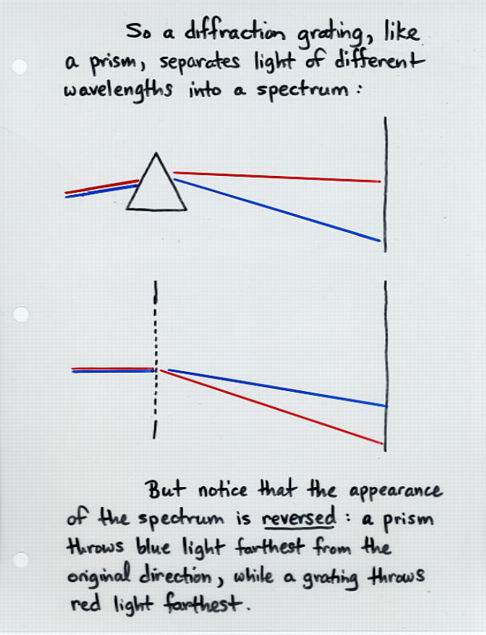 So a diffraction grating, like
a prism, separates light of different
wavelengths into a spectrum:
But notice that the appearance
of the spectrum is reversed: a prism
throws blue light farthest from the
original direction, while a grating throws
red light farthest.